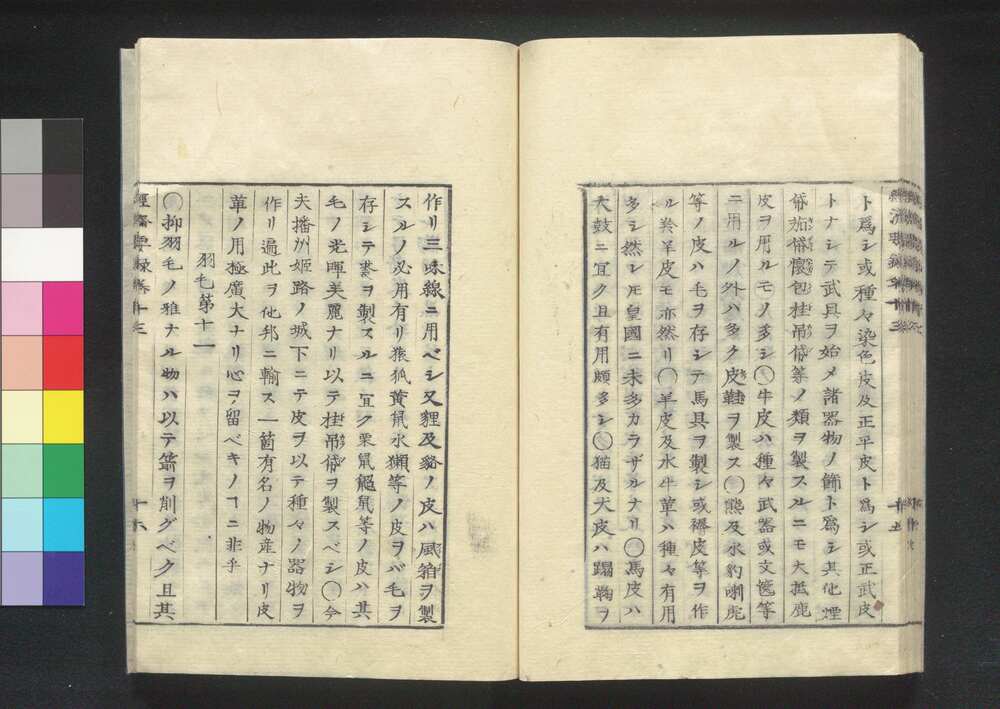 ト爲シ或種々染色皮及正平皮ト爲シ或正武皮
トナシテ武具ヲ始メ諸器物ノ飾ト爲シ其他煙
袋懷包挂吊袋等ノ類ヲ製スルニモ大抵鹿
皮ヲ用ルモノ多シ〇牛皮ハ種々武器或文篋等
ニ用ルノ外ハ多ク皮鞋ヲ製ス〇熊及水豹喇虎
等ノ皮ハ毛ヲ存シテ馬具ヲ製シ或褥皮等ヲ作
ル羚羊皮モ亦然リ〇羊皮及水牛革ハ種々有用
多シ然レ𪜈皇國ニ未多カラザルナリ〇馬皮ハ
大鼓ニ宜ク且有用頗多シ〇猫及犬皮ハ蹋鞠ヲ
作リ三味線ニ用ベシ又貍及貉ノ皮ハ風箱ヲ製
スルノ必用有リ猿狐黄鼠水獺等ノ皮ヲバ毛ヲ
存シテ裘ヲ製スルニ宜ク栗鼠鼯鼠等ノ皮ハ其
毛ノ光暉美麗ナリ以テ挂吊袋ヲ製スベシ〇今
夫播州姬路ノ城下ニテ皮ヲ以テ種々ノ器物ヲ
作リ遍此ヲ他邦ニ輸ス一箇有名ノ物産ナリ皮
革ノ用極廣大ナリ心ヲ留ベキノヿニ非乎
羽毛第十一
〇抑羽毛ノ雅ナル物ハ以テ箭ヲ削グベク且其
經濟要録卷十三
十六